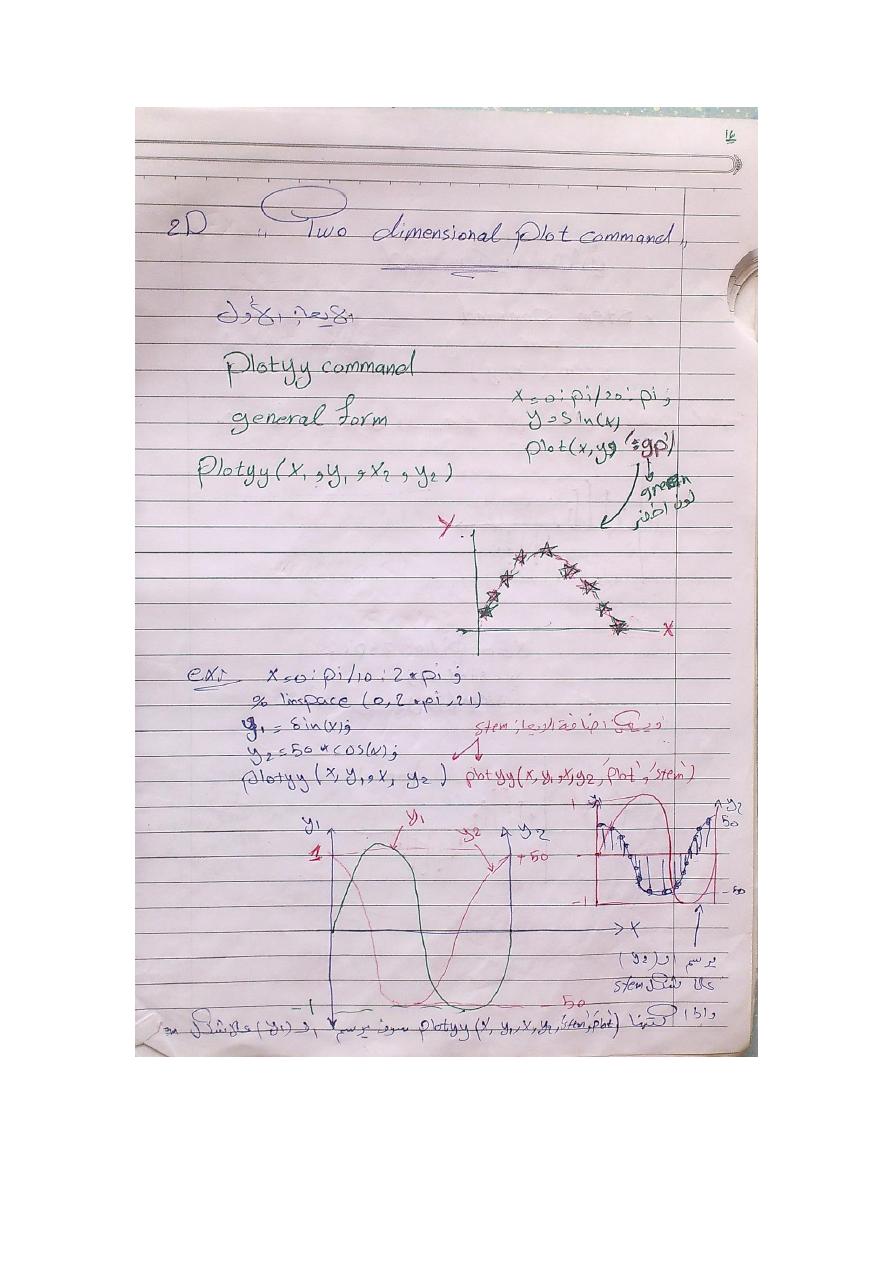 16
2D " Two dimensional plot command "
الايعاز الأول
Plotyy command
general form
Plotyy (x₁, y₁, x₂, y₂)
x=0:pi/20:pi;
y=sin(x)
plot(x,y,':gp')
green
لون اخضر
Y
X
ex: x=0:pi/10:2*pi;
% linspace (0,2*pi,21)
y₁=sin(x);
y₂=50*cos(x);
plotyy (x,y₁,x,y₂)
ويمكن اضافة الايعاز stem
plotyy(x,y₁,x,y₂,'plot','stem')
y₁
y₁
y₂
y₂
1
+50
X
-1
-50
1
y₂
50
-1
-50
يرسم الـ (y₂)
على شكل stem
واذا كتبنا plotyy(x,y₁,x,y₂,'stem','plot') سوف يرسم الـ (y₁) على شكل